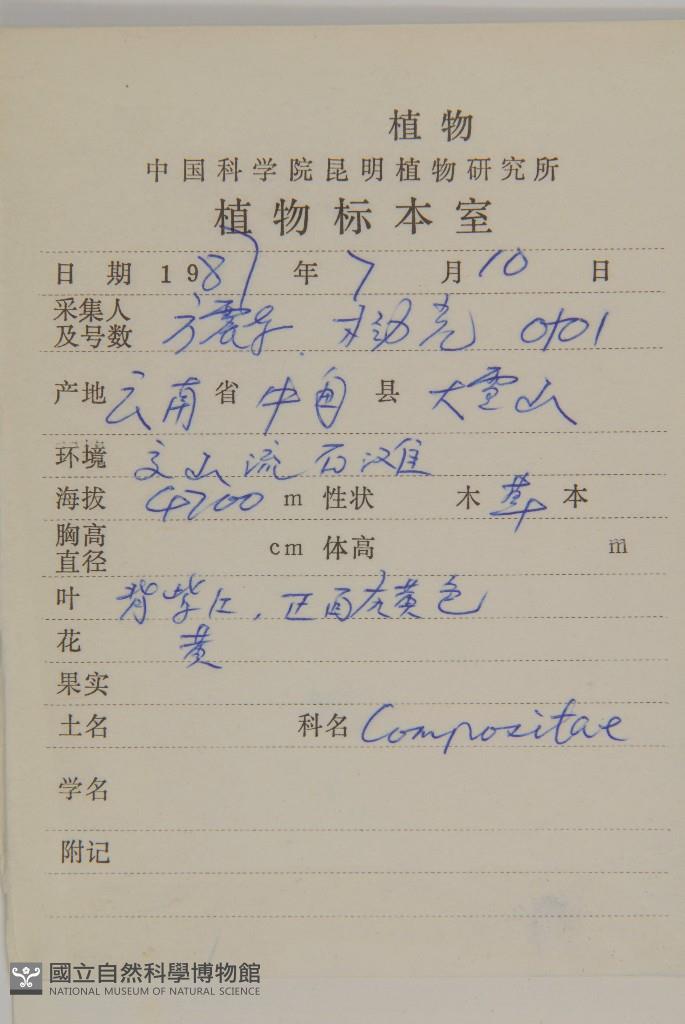 植物
中国科学院昆明植物研究所
植物标本室
日 期 1987 年 7 月 10 日
采集人
及号数 方震东 0101
产地 云南 省 中甸 县 大雪山
环境 山流石滩
海拔 4200 m 性状 木 草 本
胸高
直径 cm 体高 m
叶 背紫红，正面灰黄色
花 黄
果实
土名 科名 Compositae
学名
附记
國立自然科學博物館
NATIONAL MUSEUM OF NATURAL SCIENCE